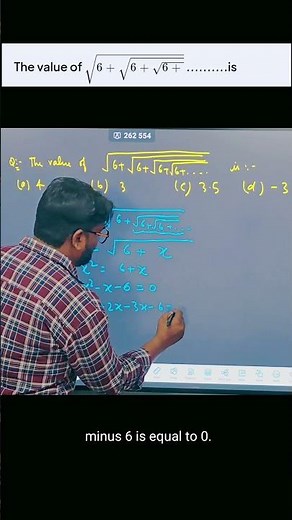 The value of √6 + √6 + √6 + ..........is
262 554
Q:- The value of √6+√6+√6+√6+.... is :-
(a) 4 (b) 3 (c) 3.5 (d) -3
√6+√6+√6+...
= √6 + x
x² = 6+x
x² - x - 6 = 0
2x - 3x - 6 =
minus 6 is equal to 0.